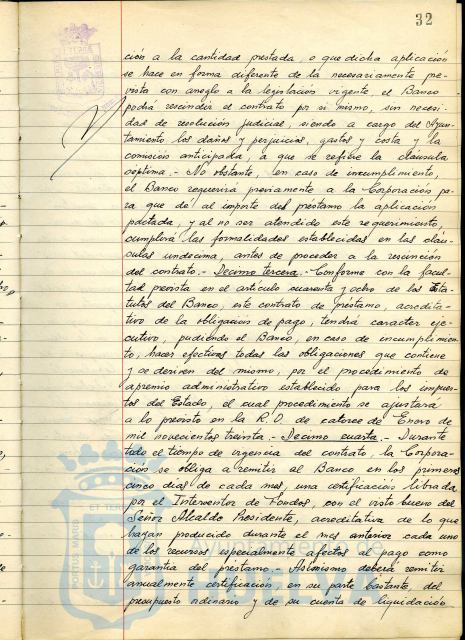 32
ción a la cantidad prestada, o que dicha aplicación
se hace en forma diferente de la necesariamente pre-
vista con arreglo a la legislación vigente el Banco
podrá rescindir el contrato por si mismo, sin necesi-
dad de resolución judicial, siendo a cargo del Ayun-
tamiento los daños y perjuicios, gastos y costa y la
comisión anticipada, a que se refiere la cláusula
septima.- No obstante, en caso de incumplimiento,
el Banco requerirá previamente a la Corporación pa-
ra que dé al importe del prestamo la aplicación
pactada, y al no ser atendido este requerimiento,
cumplirá las formalidades establecidas en las cláu-
sulas undecima, antes de proceder a la rescinción
del contrato.- Decimo tercera.- Conforme con la facul-
tad prevista en el articulo cuarenta y ocho de los Esta-
tutos del Banco, este contrato de préstamo, acredita-
tivo de la obligacion de pago, tendrá caracter eje-
cutivo, pudiendo el Banco, en caso de incumplimien-
to, hacer efectivas todas las obligaciones que contiene
y se deriven del mismo, por el procedimiento de
apremio administrativo establecido para los impues-
tos del Estado, el cual procedimiento se ajustará
a lo previsto en la R. O. de catorce de Enero de
mil novecientos treinta.- Decimo cuarta.- Durante
todo el tiempo de vigencia del contrato, la Corpora-
ción se obliga a remitir al Banco en los primeros
cinco dias de cada mes, una certificación librada
por el Interventor de Fondos, con el visto bueno del
Señor Alcalde Presidente, acreditativa de lo que
hayan producido durante el mes anterior cada uno
de los recursos especialmente afectos al pago como
garantia del préstamo.- Asimismo deberá remitir
anualmente certificación, en su parte bastante, del
presupuesto ordinario y de su cuenta de liquidación